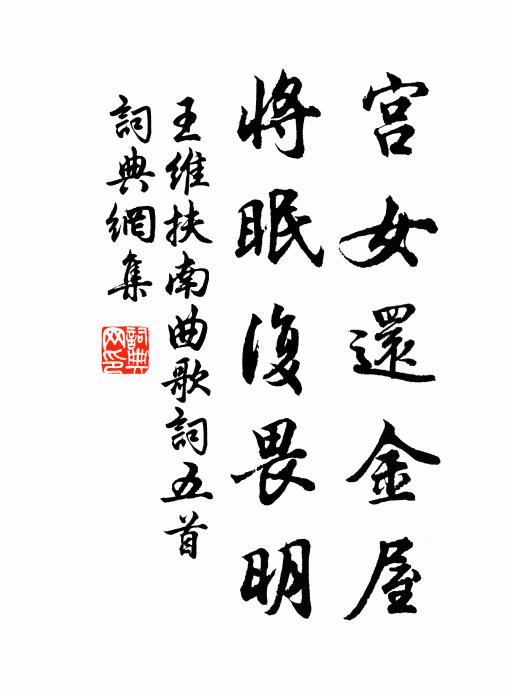 宮女還金屋
將眠復畏明
王維扶南曲歌詞五首
詞典網集
詞典網印